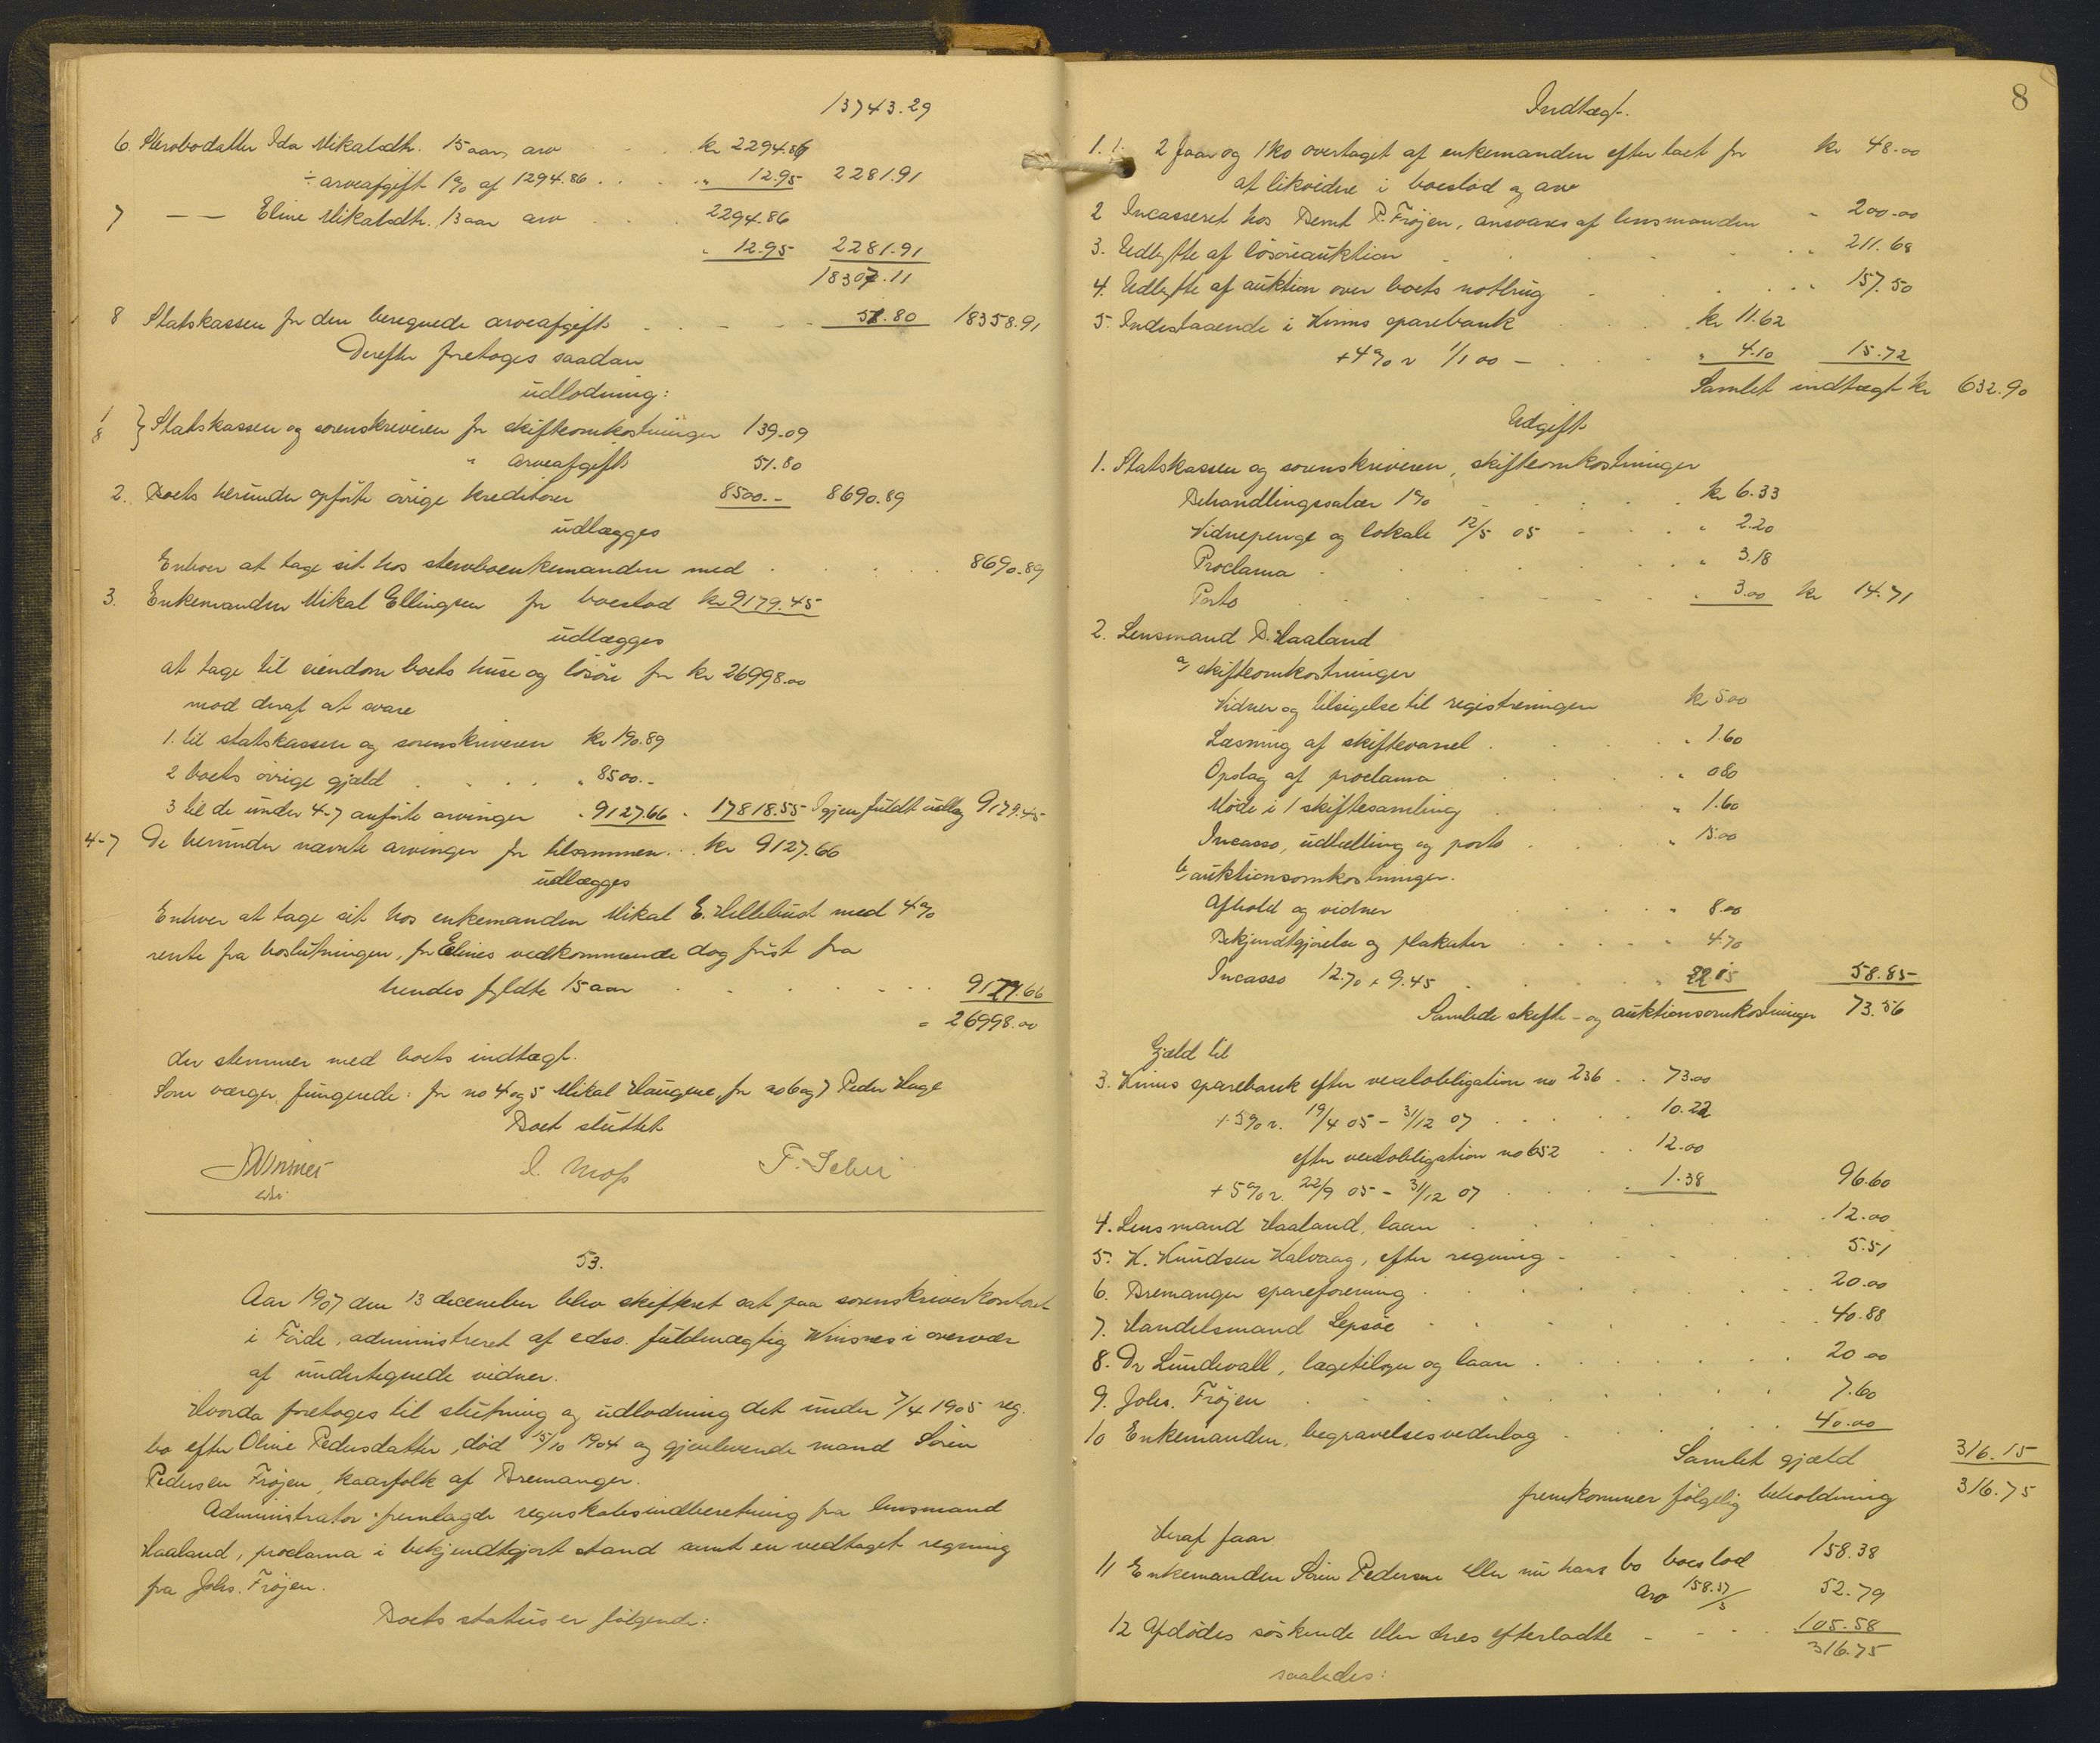 13743.29
6. Stervbodatter Ida Mikalsdtr. 15 aar, arv . . kr 2294.86
÷ arveafgift 1% af 1294.86 . . . „ 12.95 2281.91
7 — — Eline Mikalsdtr. 13 aar arv . . . 2294.86
„ 12.95 2281.91
18307.11
8 Statskassen for den beregnede arveafgift . . . . 51.80 18358.91
Derefter foretoges saadan
udlodning:
1/8 } Statskassen og sorenskriveren for skifteomkostninger 139.09
„ arveafgift 51.80
2. Boets herunder opførte øvrige kreditorer 8500.- 8690.89
udlægges
Enhver at tage sit hos stervboenkemanden med . . . . 8690.89
3. Enkemanden Mikal Ellingsen for boeslod kr 9179.45
udlægges
at tage til eiendom boets huse og løsøre for kr 26998.00
mod deraf at svare
1. til statskassen og sorenskriveren kr 190.89
2 boets øvrige gjæld . . . . „ 8500.-
3 til de under 4-7 anførte arvinger „ 9127.66 „ 17818.55 Igjen fuldt udlæg 9179.45
4-7 De herunder nævnte arvinger for tilsammen . . kr 9127.66
udlægges
Enhver at tage sit hos enkemanden Mikal E. Hellebust med 4%
rente fra boslutningen, for Elines vedkommende dog først fra
hendes fyldte 15 aar . . . . . . 9127.66
= 26998.00
der stemmer med boets indtægt.
Som værger fungerede: for no 4 og 5 Mikal Haugene, for no 6 og 7 Peder Hage
Boet sluttet
Winsnes
edsv.
I. Moss
F. Seher
53.
Aar 1907 den 13 december blev skifteret sat paa sorenskriverkontoret
i Førde, administreret af edsv. fuldmægtig Winsnes i overvær
af undertegnede vidner.
Hvorda foretoges til slutning og udlodning det under 7/4 1905 reg.
bo efter Oline Pedersdatter, død 15/10 1904 og gjenlevende mand Søren
Pedersen Frøjen, kaarfolk af Bremanger.
Administrator fremlagde regnskabsindberetning fra lensmand
Haaland, proclama i bekjendtgjort stand samt en vedtaget regning
fra Johs. Frøjen.
Boets status er følgende:
8
Indtægt.
1. 1. 2 faar og 1 ko overtaget af enkemanden efter taxt for kr 48.00
at likvidere i boeslod og arv
2 Incasseret hos Bernt P. Frøjen, ansvares af lensmanden „ 200.00
3. Udbytte af løsøreauktion . . . . . „ 211.68
4. Udbytte af auktion over boets notbrug . . . . „ 157.50
5. Indestaaende i Kinns sparebank . . . kr 11.62
+4% r. 1/1 00 — . . . „ 4.10 15.72
Samlet indtægt kr 632.90
Udgift
1. Statskassen og sorenskriveren, skifteomkostninger
Behandlingssalær 1% . . . . kr 6.33
Vidnepenge og lokale 12/5 05 . . . „ 2.20
Proclama . . . . . . „ 3.18
Porto . . . . . . „ 3.00 kr 14.71
2. Lensmand B. Haaland
a) skifteomkostninger
Vidner og tilsigelse til registreringen kr 5.00
Læsning af skiftevarsel . . . . „ 1.60
Opslag af proclama . . . . „ 0.80
Møde i 1 skiftesamling . . . „ 1.60
Incasso, udbetaling og porto . . . „ 15.00
b) auktionsomkostninger.
Afhold og vidner . . . . „ 8.00
Bekjendtgjørelse og plakater . . . . „ 4.70
Incasso 12.70 + 9.45 . . . . „ 22.15 58.85
Samlede skifte- og auktionsomkostninger 73.56
Gjæld til
3. Kinns sparebank efter vexelobligation no 236 . . 73.00
+ 5% r. 19/4 05 – 31/12 07 . . . . 10.22
efter vexelobligation no 652 . . 12.00
+ 5% r. 22/9 05 – 31/12 07 . . . . 1.38 96.60
4. Lensmand Haaland, laan . . . . . 12.00
5. K. Knudsen Kalvaag, efter regning . . . . 5.51
6. Bremanger spareforening . . . . . . 20.00
7. Handelsmand Lepsøe . . . . . . 40.88
8. Dr Lundevall, lægetilsyn og laan . . . . . 20.00
9. Johs. Frøjen . . . . . . . 7.60
10 Enkemanden, begravelsesvederlag . . . . . 40.00
Samlet gjæld 316.15
fremkommer følgelig beholdning 316.75
Heraf faar
11 Enkemanden Søren Pedersen eller nu hans bo boeslod 158.38
Arv 158.37/3 52.79
12 Afdødes søskende eller deres efterladte - - - . . 105.58
316.75
saaledes: